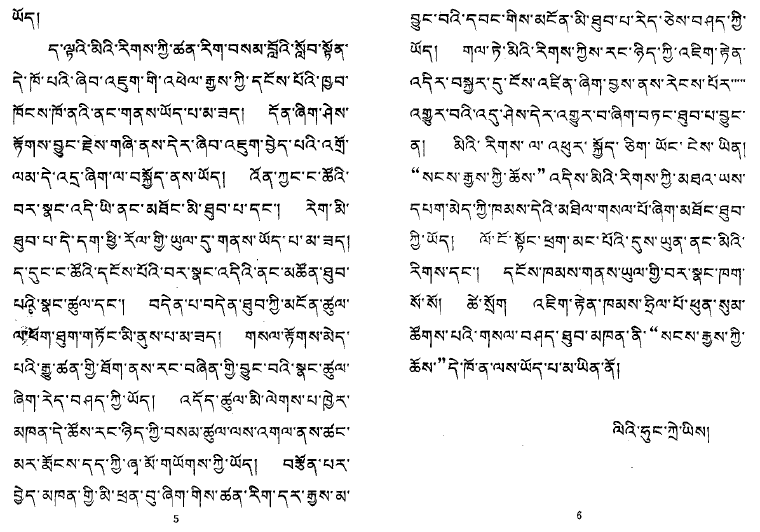 ཡོད།
ད་ལྟའི་མིའི་རིགས་ཀྱི་ཚན་རིག་བསམ་བློའི་སློབ་སྟོན་
དེ་ཁོ་པའི་ཞིབ་འཇུག་གི་འཕེལ་རྒྱས་ཀྱི་དངོས་པོའི་ཁྱབ་
ཁོངས་ཁོ་ནའི་ནང་གནས་ཡོད་པ་མ་ཟད། དོན་ཞིག་ཤེས་
རྟོགས་བྱུང་རྗེས་གཞི་ནས་དེར་ཞིབ་འཇུག་བྱེད་པའི་འགྲོ་
ལམ་དེ་འདྲ་ཞིག་ལ་བསྐྱོད་ནས་ཡོད། འོན་ཀྱང་ང་ཚོའི་
བར་སྣང་འདི་ཡི་ནང་མཐོང་མི་ཐུབ་པ་དང་། རེག་མི་
ཐུབ་པ་དེ་དག་ཕྱི་རོལ་གྱི་ཡུལ་དུ་གནས་ཡོད་པ་མ་ཟད།
ད་དུང་ང་ཚོའི་དངོས་པོའི་བར་སྣང་འདིའི་ནང་མཚོན་ཐུབ་
པའི་སྣང་ཚུལ་དང་། བདེན་པ་བདེན་ཐུབ་ཀྱི་མངོན་ཚུལ་
ལ་ཕོག་ཐུག་གཏོང་མི་ནུས་པ་མ་ཟད། གསལ་རྟོགས་མེད་
པའི་རྒྱུ་ཚན་གྱི་ཐོག་ནས་རང་བཞིན་གྱི་བྱུང་བའི་སྣང་ཚུལ་
ཞིག་རེད་བཤད་ཀྱི་ཡོད། འདོད་ཚུལ་མི་ལེགས་པ་ཁྱེར་
མཁན་དེ་ཚོས་རང་ཉིད་ཀྱི་བསམ་ཚུལ་ལས་འགལ་ནས་ཚང་
མར་རྨོངས་དད་ཀྱི་ཞྭ་མོ་གཡོགས་ཀྱི་ཡོད། བརྩོན་པར་
བྱེད་མཁན་གྱི་མི་ཕྲན་བུ་ཞིག་གིས་ཚན་རིག་དར་རྒྱས་མ་
5
བྱུང་བའི་དབང་གིས་མངོན་མི་ཐུབ་པ་རེད་ཅེས་བཤད་ཀྱི་
ཡོད། གལ་ཏེ་མིའི་རིགས་ཀྱིས་རང་ཉིད་ཀྱི་འཇིག་རྟེན་
འདིར་བསྐྱར་དུ་ངོས་འཛིན་ཞིག་བྱས་ནས་རེངས་པོར་
འགྱུར་བའི་འདུ་ཤེས་དེར་འགྱུར་བ་ཞིག་བཏང་ཐུབ་པ་བྱུང་
ན། མིའི་རིགས་ལ་འཕུར་སྐྱོད་ཅིག་ཡོང་ངེས་ཡིན།
“སངས་རྒྱས་ཀྱི་ཆོས་”འདིས་མིའི་རིགས་ཀྱི་མཐའ་ཡས་
དཔག་མེད་ཀྱི་ཁམས་དེའི་མཐིལ་གསལ་པོ་ཞིག་མཐོང་ཐུབ་
ཀྱི་ཡོད། ལོ་ངོ་སྟོང་ཕྲག་མང་པོའི་དུས་ཡུན་ནང་མིའི་
རིགས་དང་། དངོས་ཁམས་གནས་ཡུལ་གྱི་བར་སྣང་ཁག་
སོ་སོ། ཚེ་སྲོག འཇིག་རྟེན་ཁམས་ཧྲིལ་པོ་ཕུན་སུམ་
ཚོགས་པའི་གསལ་བཤད་ཐུབ་མཁན་ནི་“སངས་རྒྱས་ཀྱི་
ཆོས་”དེ་ཁོ་ན་ལས་ཡོད་པ་མ་ཡིན་ནོ།
ལིའི་ཧུང་ཀྲེ་ཡིས།
6